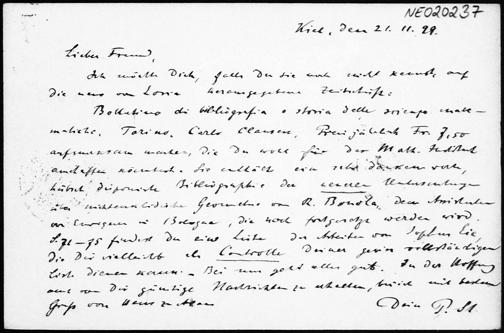 NEO20237
Kiel, den 21. 11. 99.
Lieber Freund,
Ich möchte Dich, falls Du sie noch nicht kennst, auf
die neue von Loria herausgegebene Zeitschrift:
Bollettino di bibliografia e storia delle scienze mate-
matiche. Torino, Carlo Clausen, Preis jährlich Fr. 7,50
aufmerksam machen, die Du wohl für das Math. Institut
anschaffen könntest. Sie enthält eine sehr dankenswerte,
hübsch disponirte Bibliographie der neueren Untersuchungen
über nichteuklidische Geometrie von R. Bonola, dem Assistenten
von Enriques in Bologna, die noch fortgesetzt werden wird.
S. 71-75 findest Du eine Liste der Arbeiten von Sophus Lie,
die Dir vielleicht als Controlle Deiner gewiss vollständigen
Liste dienen kann. - Bei uns geht alles gut. In der Hoffnung
auch von Dir günstige Nachrichten zu erhalten, bin ich mit bestem
Gruss von Haus zu Haus
Dein P. St